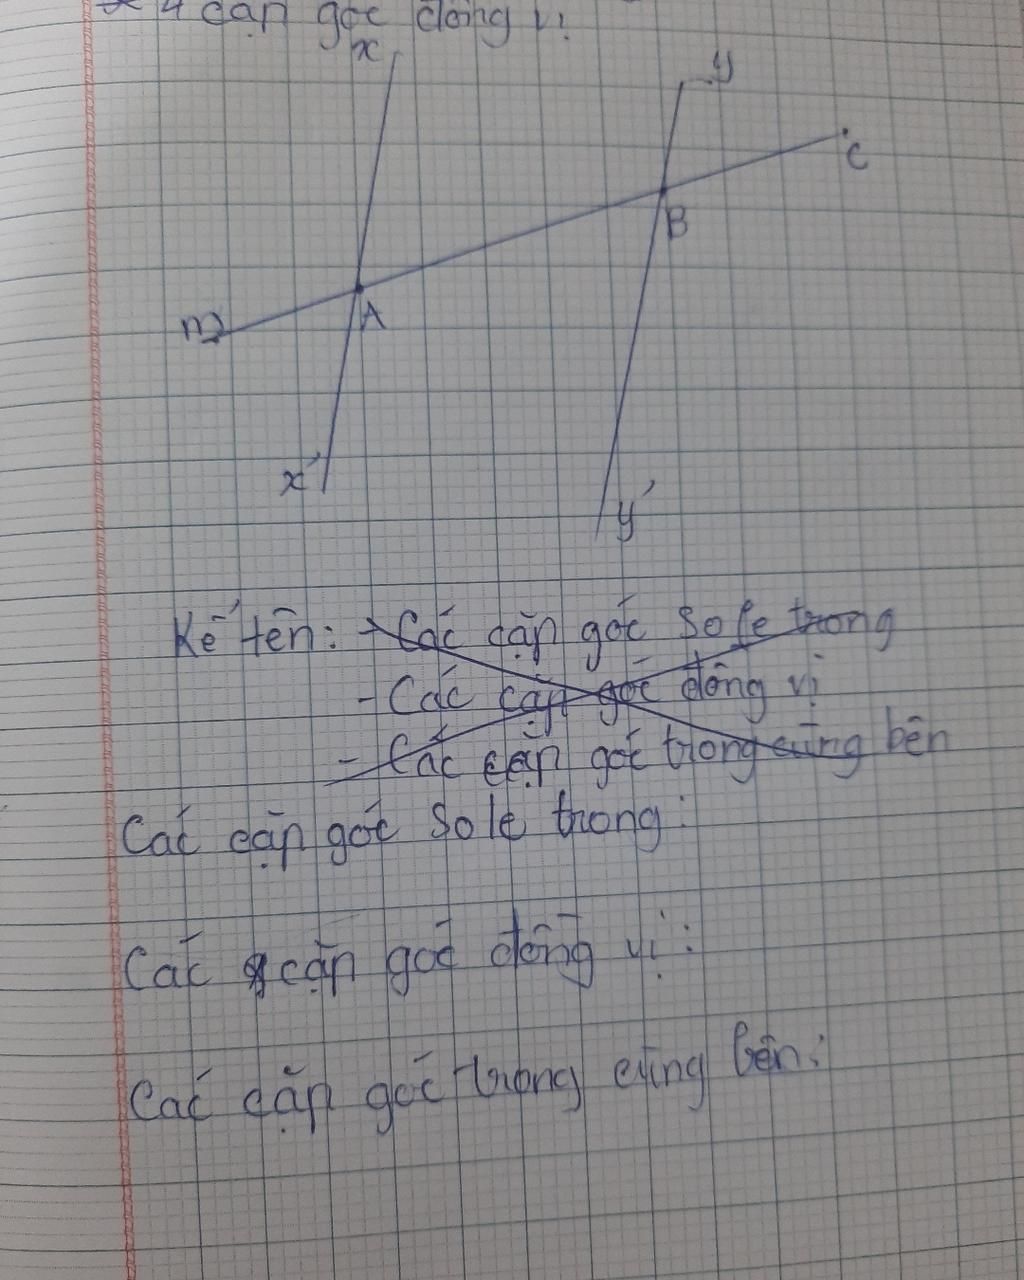 4 cặp góc đồng vị
x
y
c
B
m
A
x'
y'
Kể tên: - Các cặp góc Sole trong
- Các cặp góc đồng vị
- Các cặp góc trong cùng bên
Các cặp góc Sole trong:
Các cặp góc đồng vị:
Các cặp góc trong cùng bên: